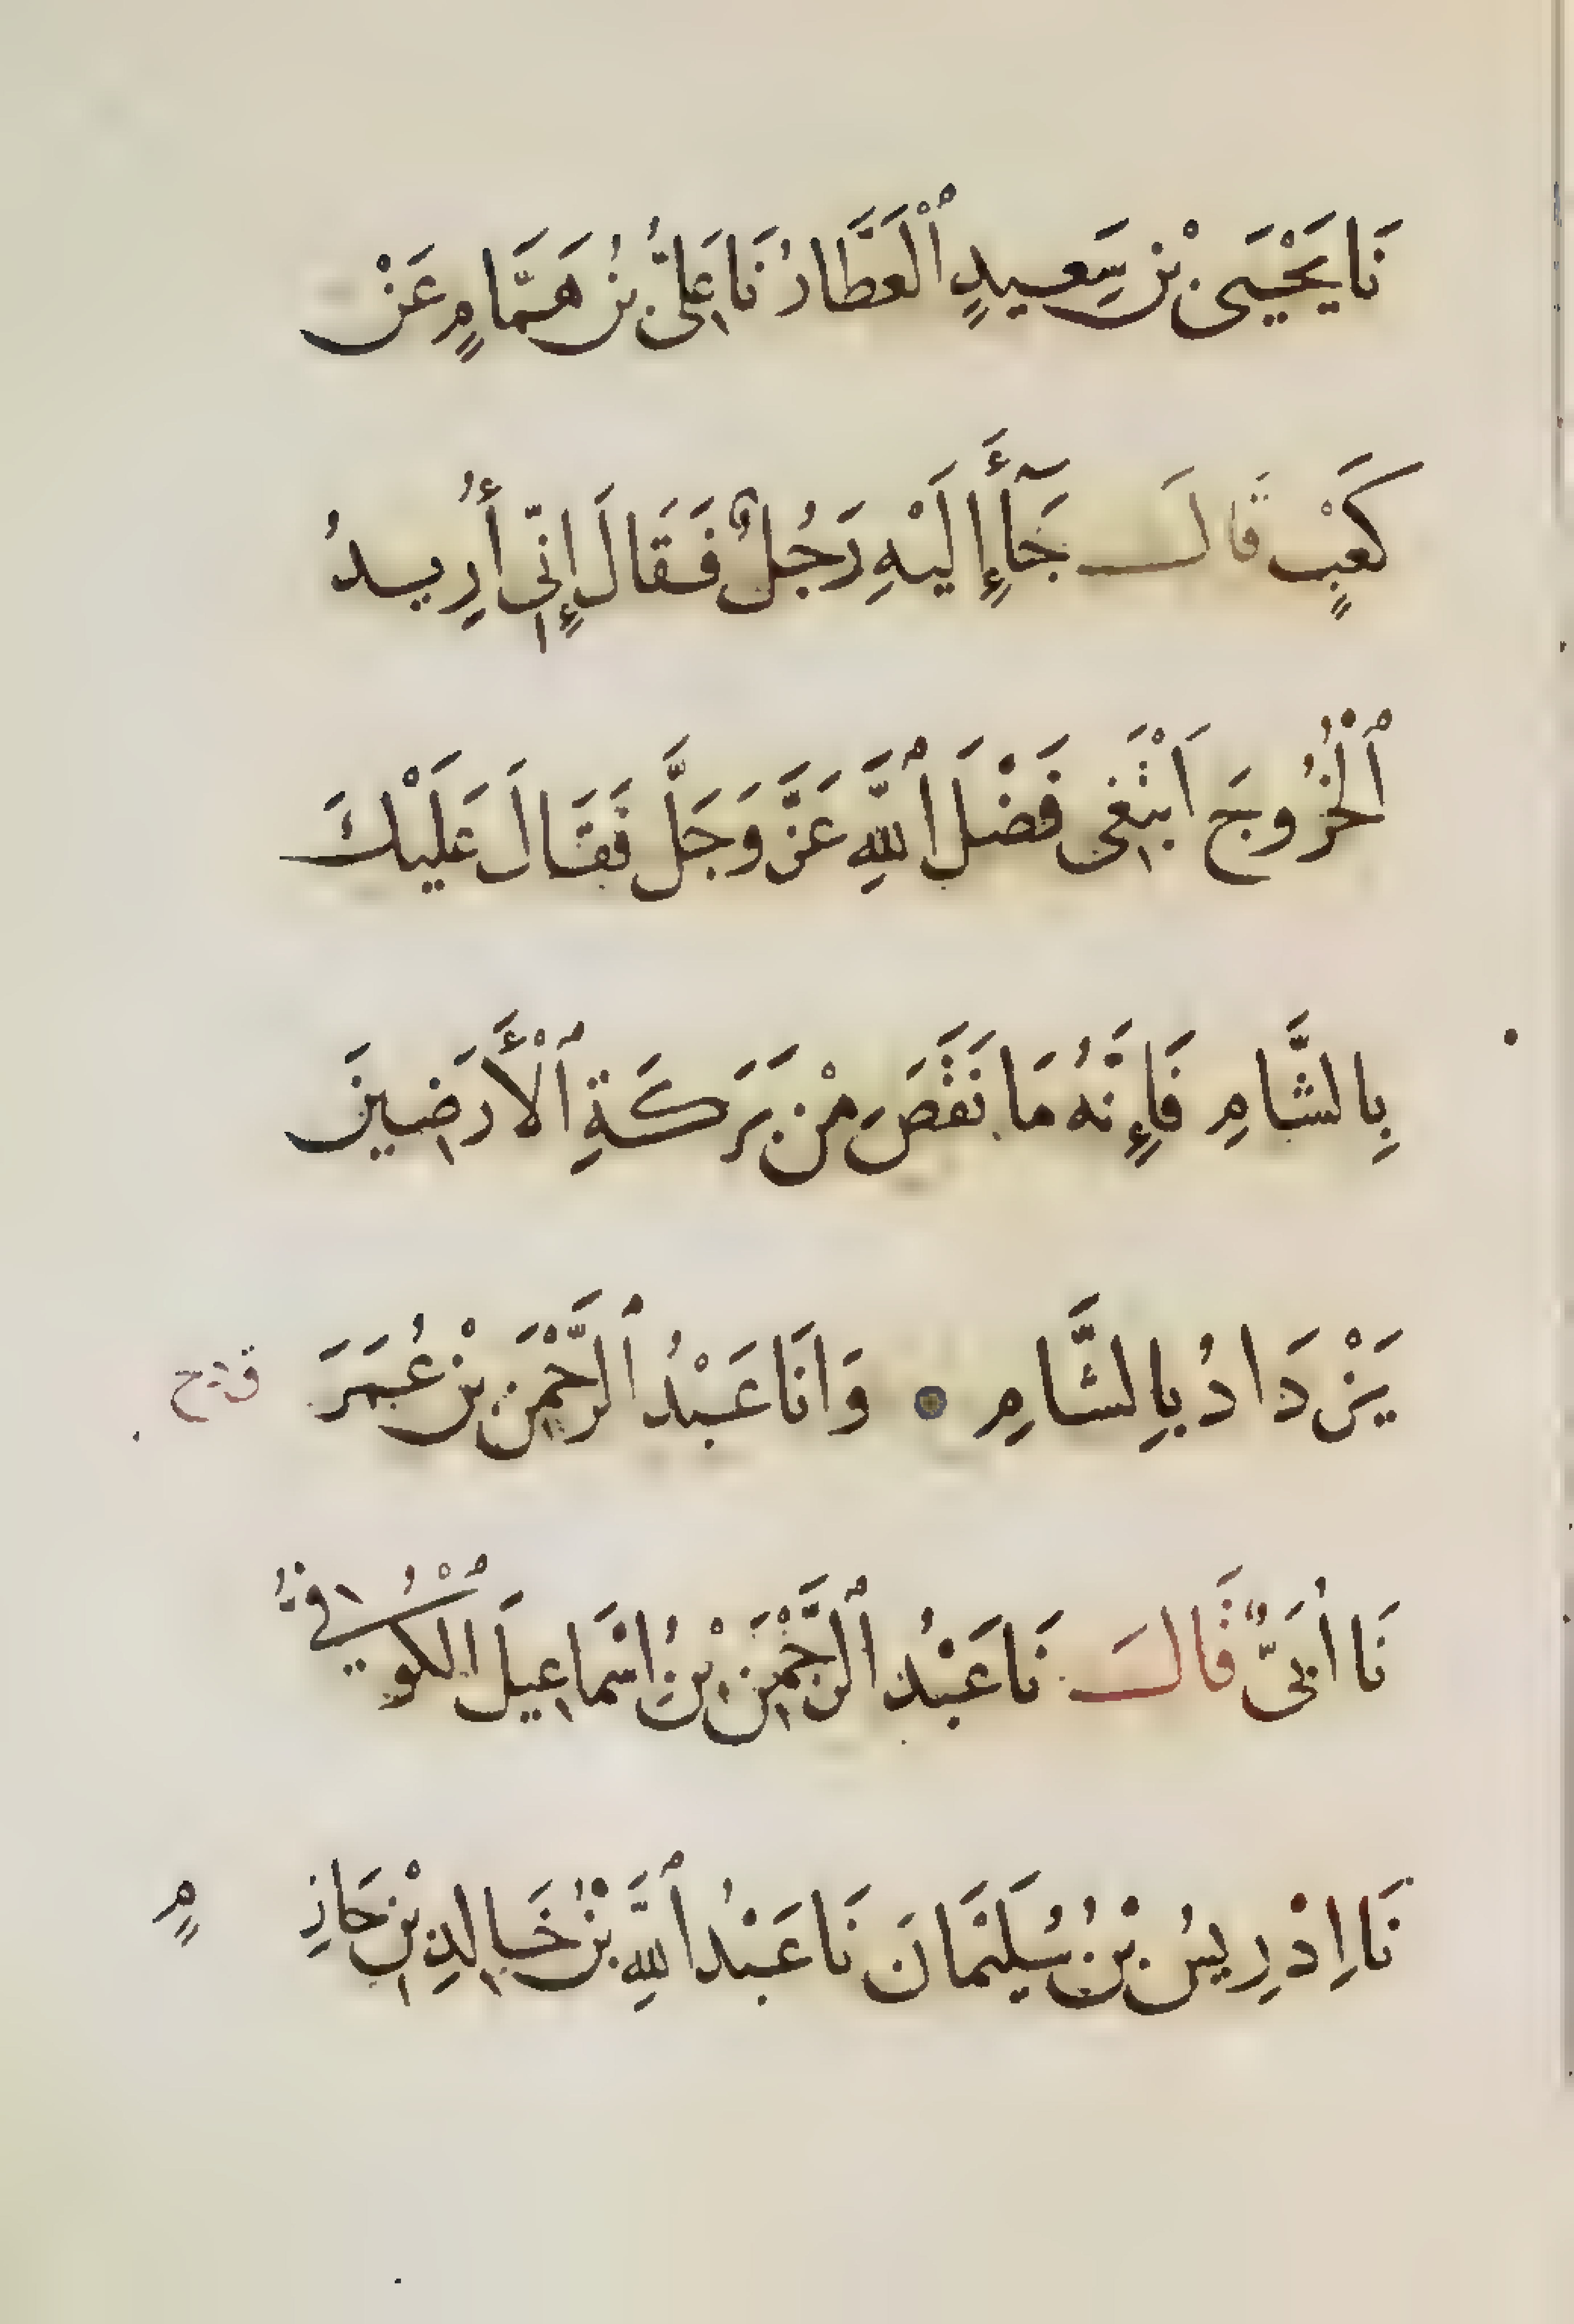 نَا يَحْيَى بْن سَعِيدٍ ٱلْعَطَّارُ نَا عَلِىُّ بْنُ هَمَّامٍ عَنْ
كَعْبٍ قَالَ جَآءَ إِلَيْهِ رَجُلٌ فَقَالَ إِنِّى أُرِيدُ
ٱلْخُرُوجَ اَبْتَغِى فَضْلَ ٱللَّهِ عَزَّ وَجَلَّ فَقَالَ عَلَيْكَ
بِالشَّامِ فَإِنَّهُ مَا نَقَصَ مِنْ بَرَكَةِ ٱلْأَرَضِينَ
يَزْدَادُ بِالشَّامِ وَانَا عَبْدُ ٱلرَّحْمَنِ بْن عُمَرَ
نَا اُبَىٌّ قَالَ نَا عَبْدُ ٱلرَّحْمَنِ بْنُ اسْمَاعِيلَ ٱلْكُوفِىُّ
نَا اِدْرِيسُ بْنُ سُلَيْمَانَ نَا عَبْدُ ٱللَّهِ بْنُ خَالِدِ بْنِ حَازِمٍ